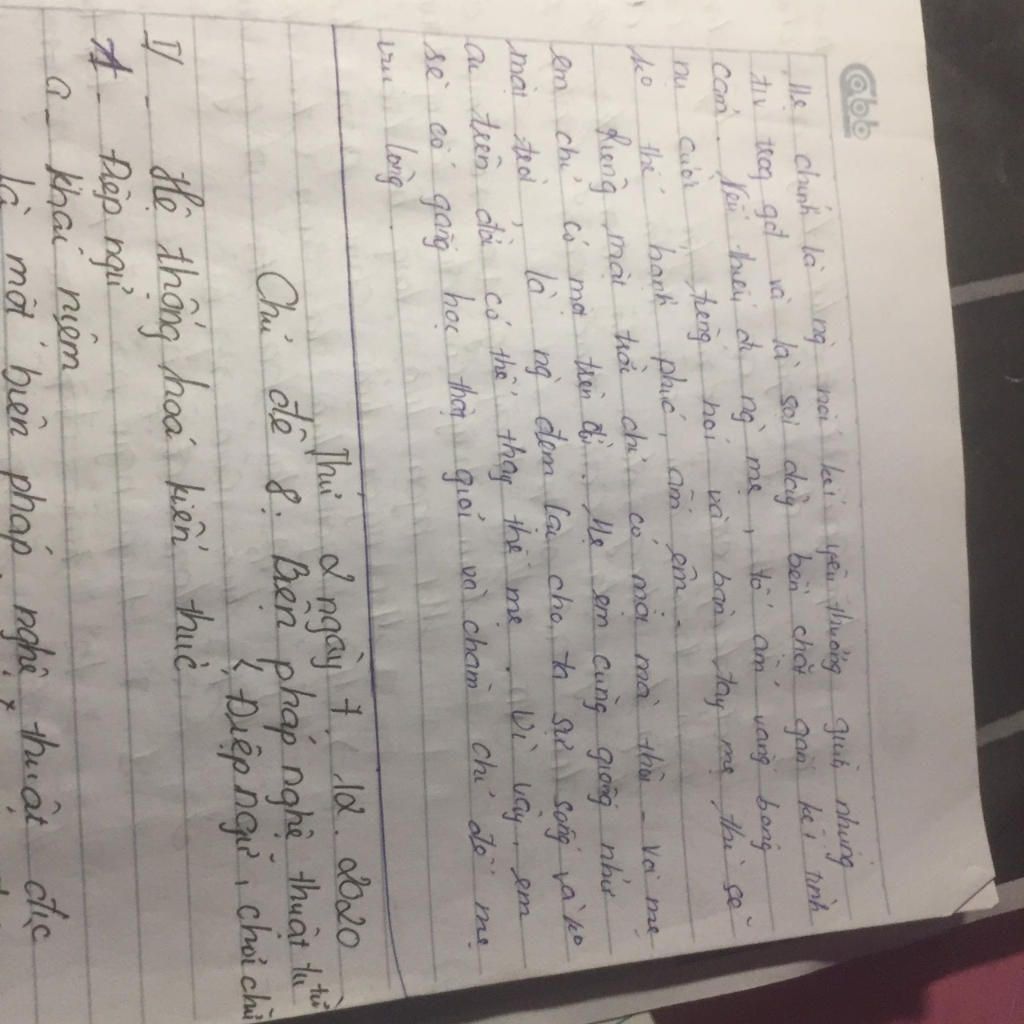 Cabb
Mẹ chính là ng nói kết yêu thương giữa những
tv trog gđ và là sợi dây bền chặt gắn kết tình
cảm. Nếu thiếu đi ng mẹ, tổ ấm vắng bóng
nụ cười, tiếng nói và bàn tay mẹ thì sẽ
ko thể hạnh phúc, ấm êm.
mặt trời chỉ có một mà thôi - và mẹ
em chỉ có một trên đời. Mẹ em cũng giống như
mặt trời, là ng đem lại cho ta sự sống và ko
ai trên đời có thể thay thế mẹ. Vì vậy, em
sẽ cố gắng học thật giỏi và chăm chỉ để mẹ
vui lòng
Thứ 2 ngày 7.12.2020
Chủ đề 8. Biện pháp nghệ thuật tu từ
( Điệp ngữ, chơi chữ
I/ - Hệ thống hoá kiến thức
1 - Điệp ngữ
a - khái niệm
là một biện pháp nghệ thuật đực